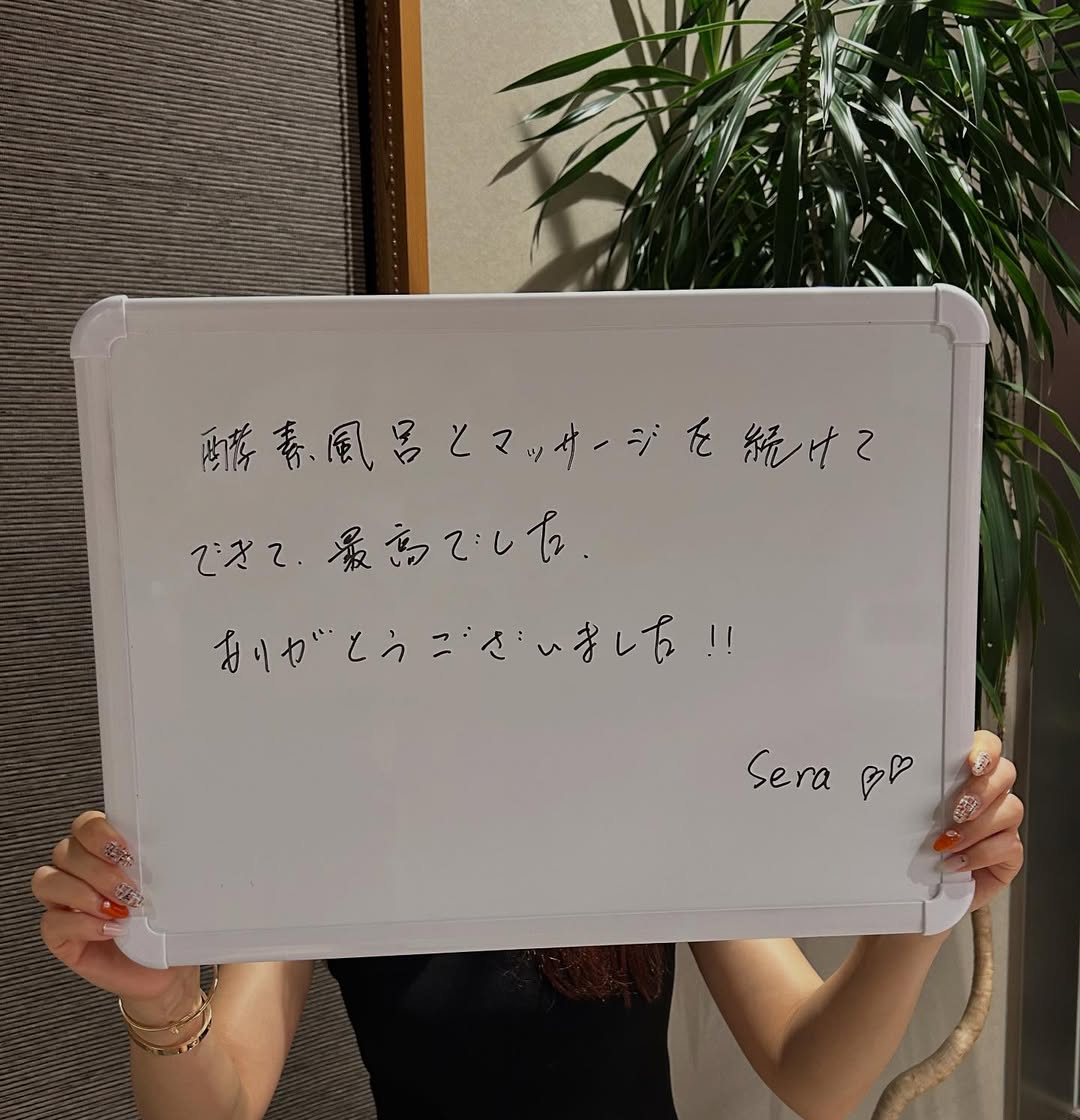 酵素風呂とマッサージを続けて
できて、最高でした.
ありがとうございました!!
Sera ♡♡